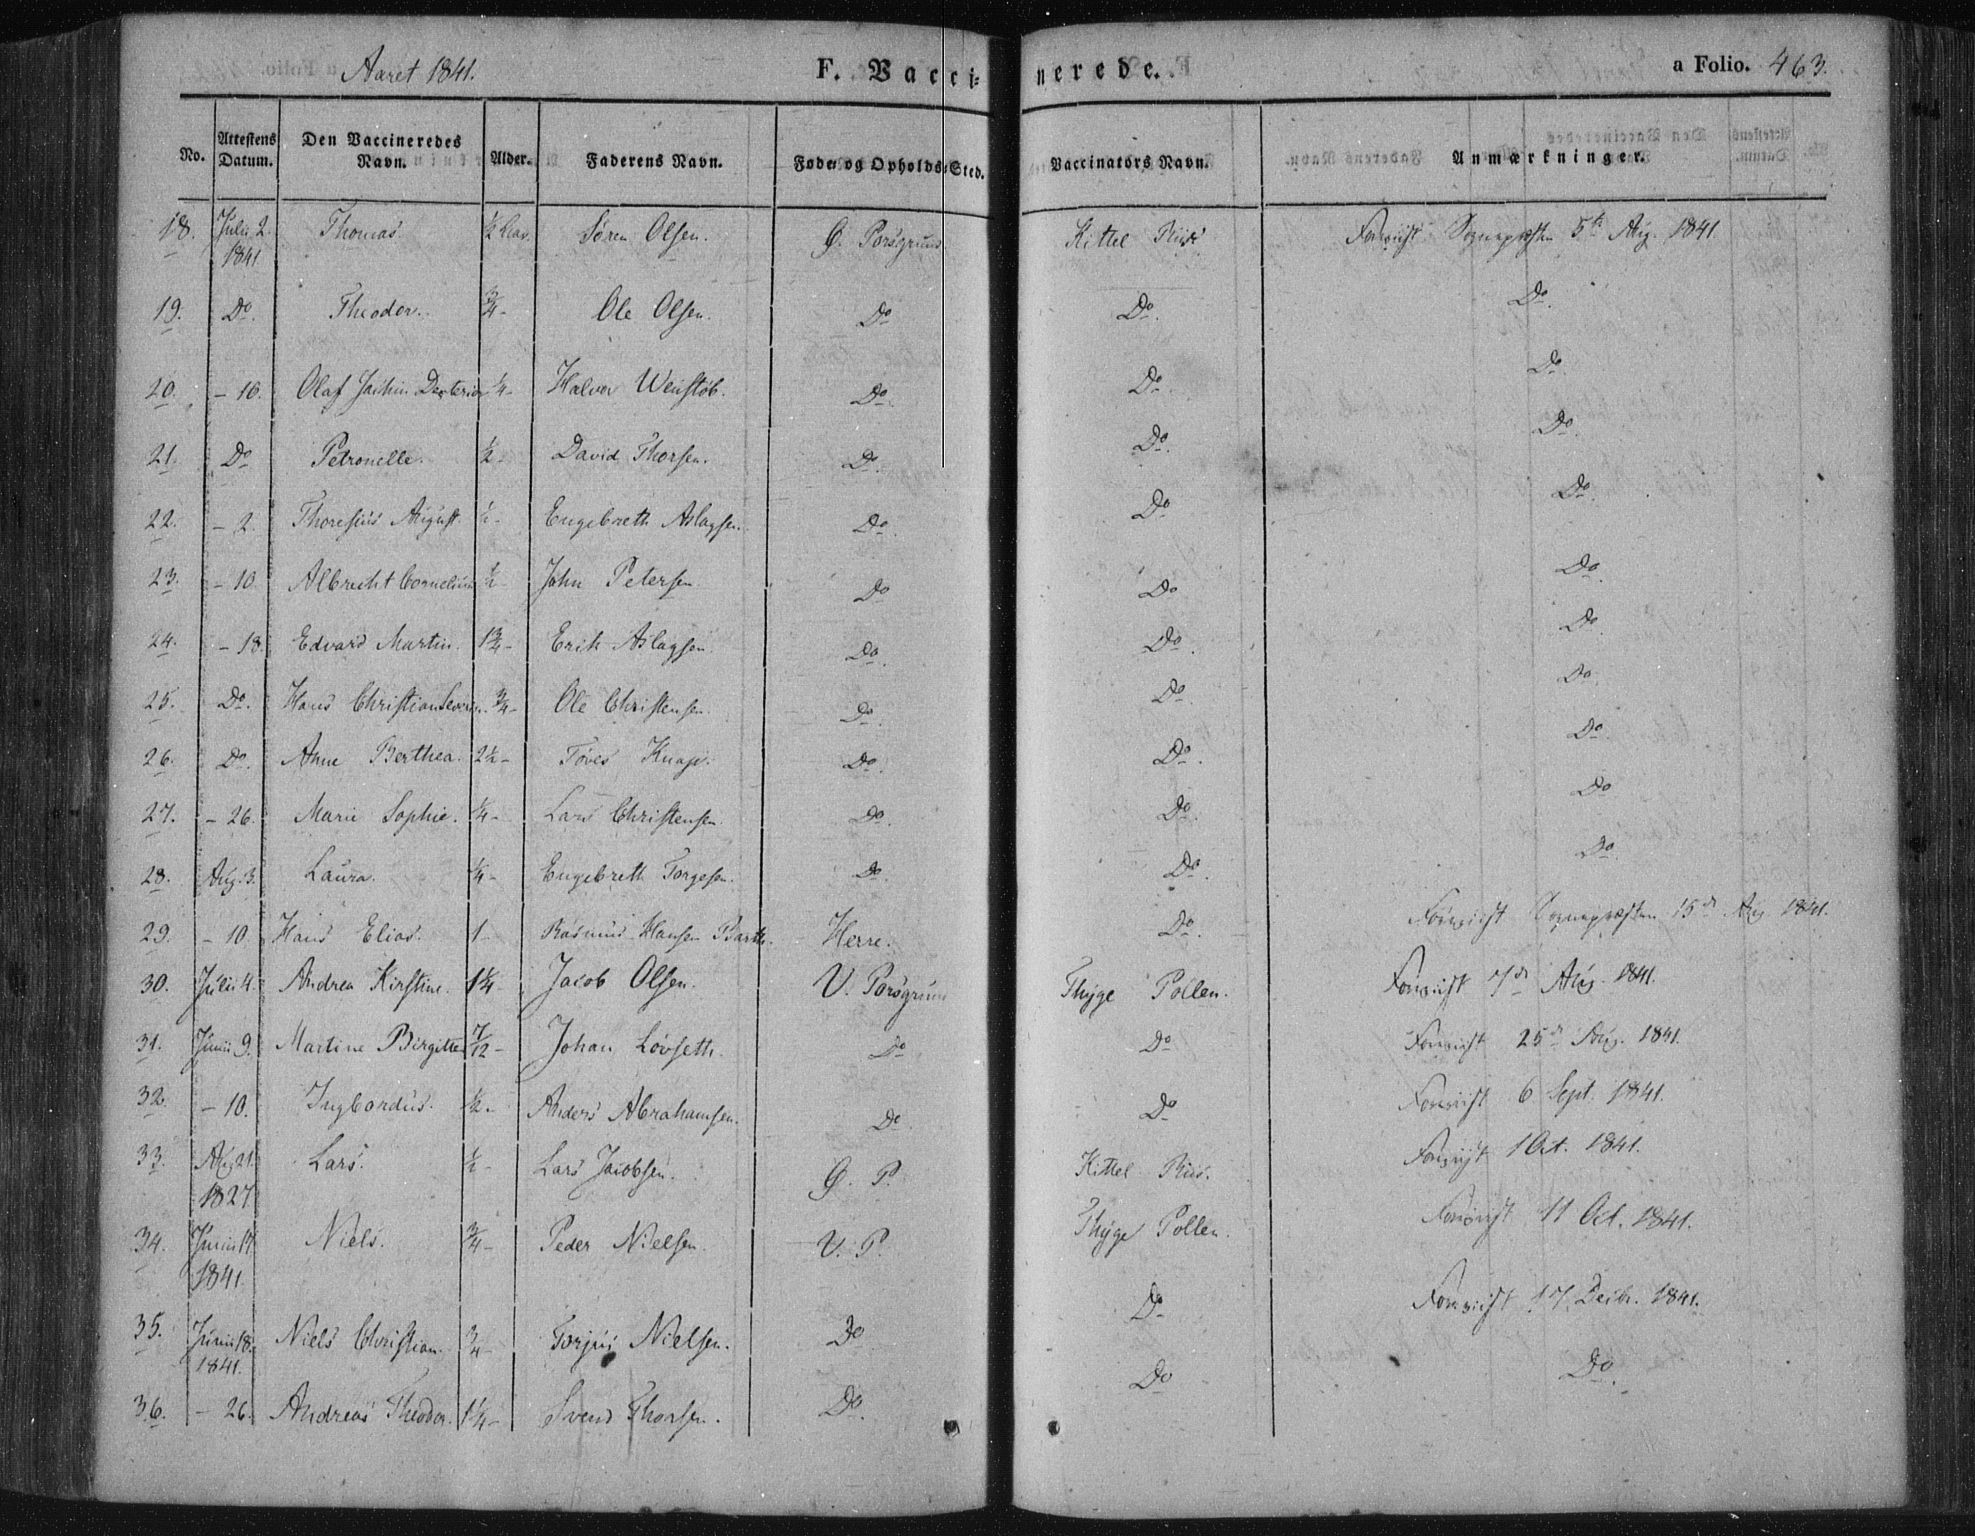 Aaret 1841. F. Vacci- nerede. a Folio. 463.
No. Attestens Datum. Den Vaccineredes Navn. Alder. Faderens Navn. Føde- og Opholds-Sted. Vaccinators Navn. Anmærkninger.
18. Julii 2. 1841 Thomas. ½ Søren Olsen. G. Porsgrund Kittel Riis 5te Aug. 1841
19. Do. Theodor. ¾ - Ole Olsen. Do Do. Do
20. - 10. Olaf ¼ - Halvor Wenstöb. Do. Do. Do.
21. Do Petronelle. ½ - David Thorsen. Do. Do. Do.
22. - 2. Thoresius August. ½ - Engebreth Aslagsen. Do. Do Do.
23. - 10. Albrecht Cornelius ½ - John Petersen. Do Do Do.
24. - 18. Edvard Martin. 1¾ - Erik Aslagsen. Do. Do. Do
25. Do. Hans Christian Severin. ¾ - Ole Christensen. Do. Do. Do
26. Do. Anne Berthea. 2½ - Knap. Do. Do. Do.
27. - 26. Marie Sophie. ¼ - Lars Christensen. Do. Do. Do
28. Aug. 3. Laura. ¼ - Engebreth Torgesen. Do Do. Do
29. - 10. Hans Elias. 1 - Rasmus Hansen Herre. Do. 15de Aug 1841.
30. Julii 4. Andrea Kirstine. 1¼ Jacob Olsen. V. Porsgrund Thyge Pollen. 7de Aug. 1841.
31. Junii 9. Martine Birgitte 7/12 - Johan Lövseth. Do Do 25de Aug. 1841.
32. - 10. ½ - Anders Abrahamsen. Do Do 6 Sept. 1841.
33. Aug 21. 1827 Lars. ½ - Lars Jacobsen. G. P. Kittel Riis. 1 Oct. 1841.
34. Junii 14 1841. Niels. ¾ - Peder Nielsen. V. P. Thyge Pollen. 11 Oct. 1841.
35. Junii 18. 1841. Niels Christian. ¾ - Torjus Nielsen. Do Do 17 Decbr. 1841.
36. - 26. Andreas Theodor. 1¼ - Svend Thorsen. Do. Do Do.